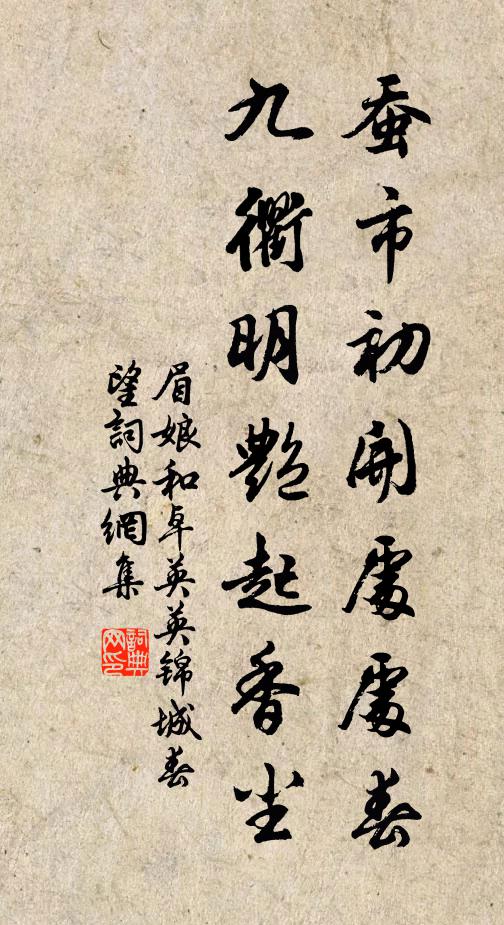 蚕市初開處處春
九衢明艷起香尘
眉娘和卓英英锦城春
望詞典網集
詞典
网印